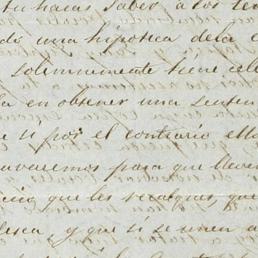 hacas saber a los
do una hipoteca dela
solemnemente tiene
en obtener una senten
si por el contrario ello
varemos para que lleven
que les recalques, que
y que si se unen a